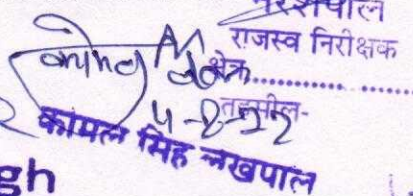 नरेशपाल
राजस्व निरीक्षक
क्षेत्र..............
तहसील-
4-2-22
कोमल सिंह लखपाल
gh